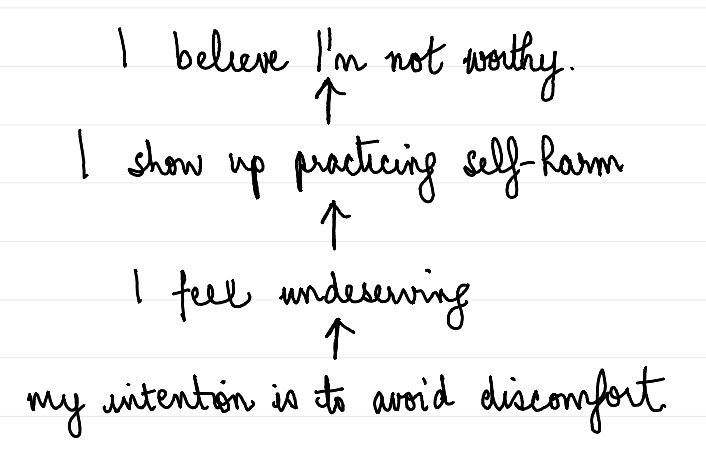 I believe I'm not worthy.
↑
I show up practicing self-harm
↑
I feel undeserving
↑
my intention is to avoid discomfort